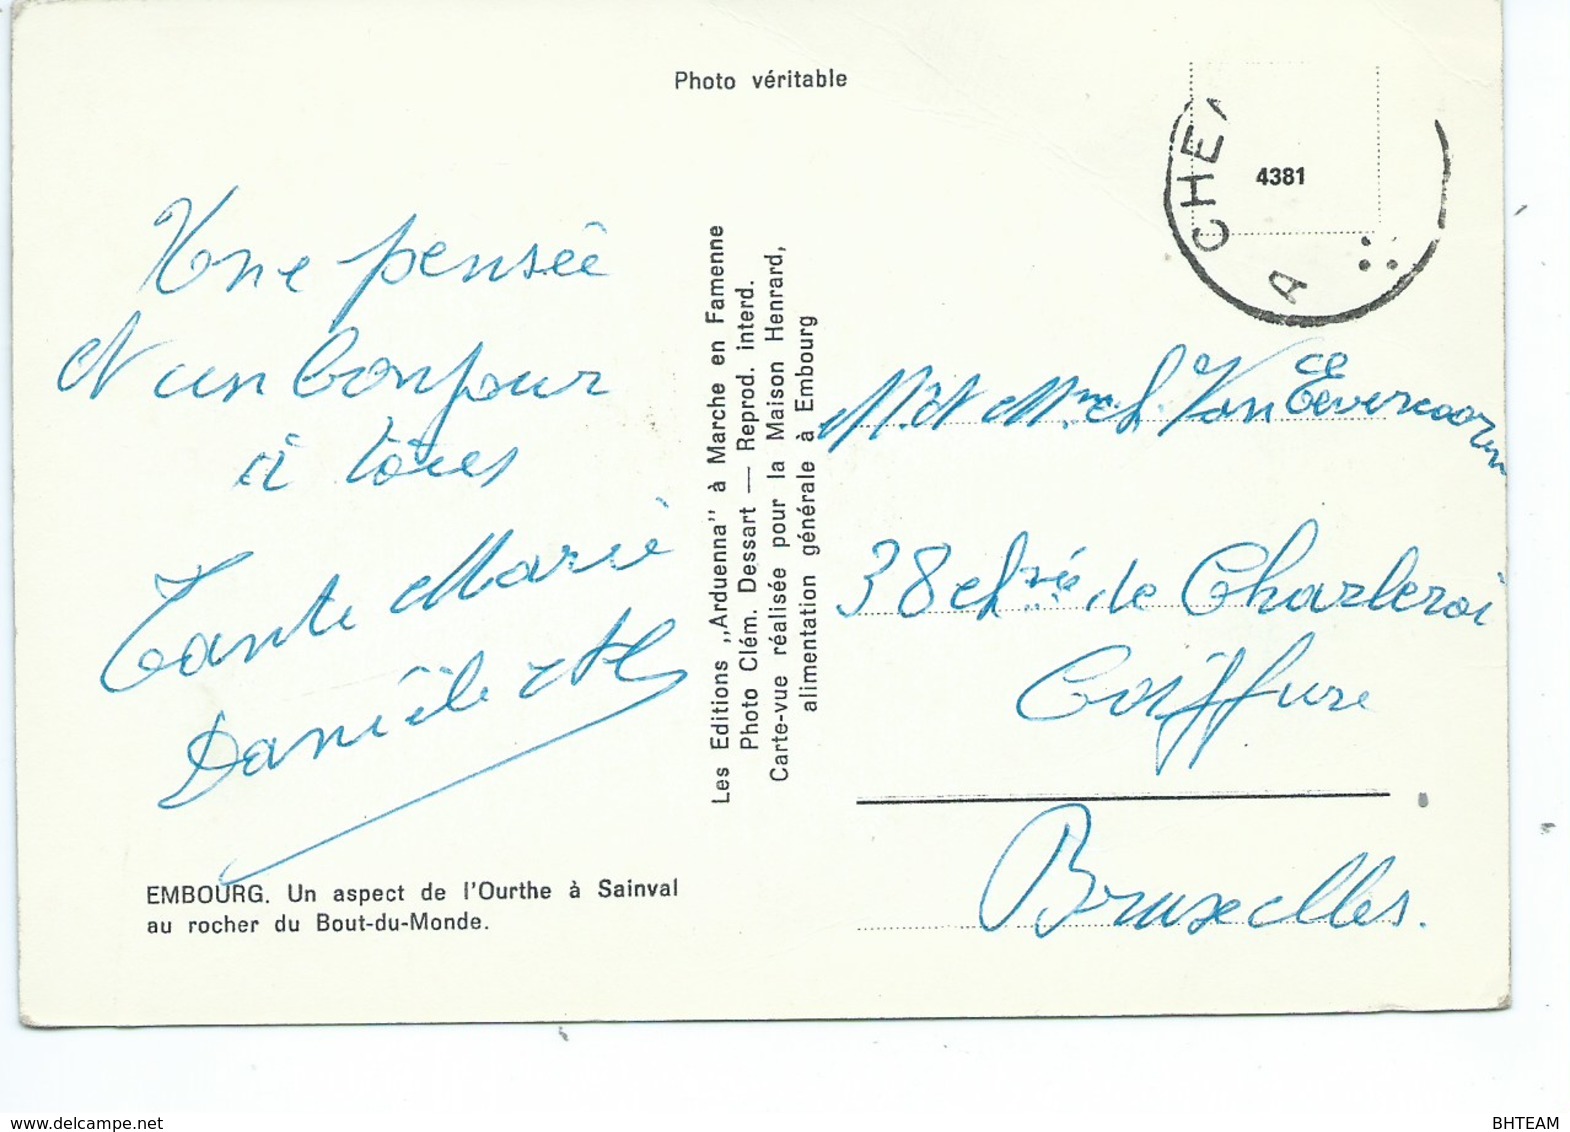 Photo véritable
CHE
A
4381
Une pensée
et un bonjour
à tous
Tante Marie
Danièle et
EMBOURG. Un aspect de l'Ourthe à Sainval
au rocher du Bout-du-Monde.
Les Editions ,,Arduenna" à Marche en Famenne
Photo Clém. Dessart — Reprod. interd.
Carte-vue réalisée pour la Maison Henrard,
alimentation générale à Embourg
Mr et Mme Ch. Van
38 chsée de Charleroi
Coiffure
Bruxelles.
BHTEAM